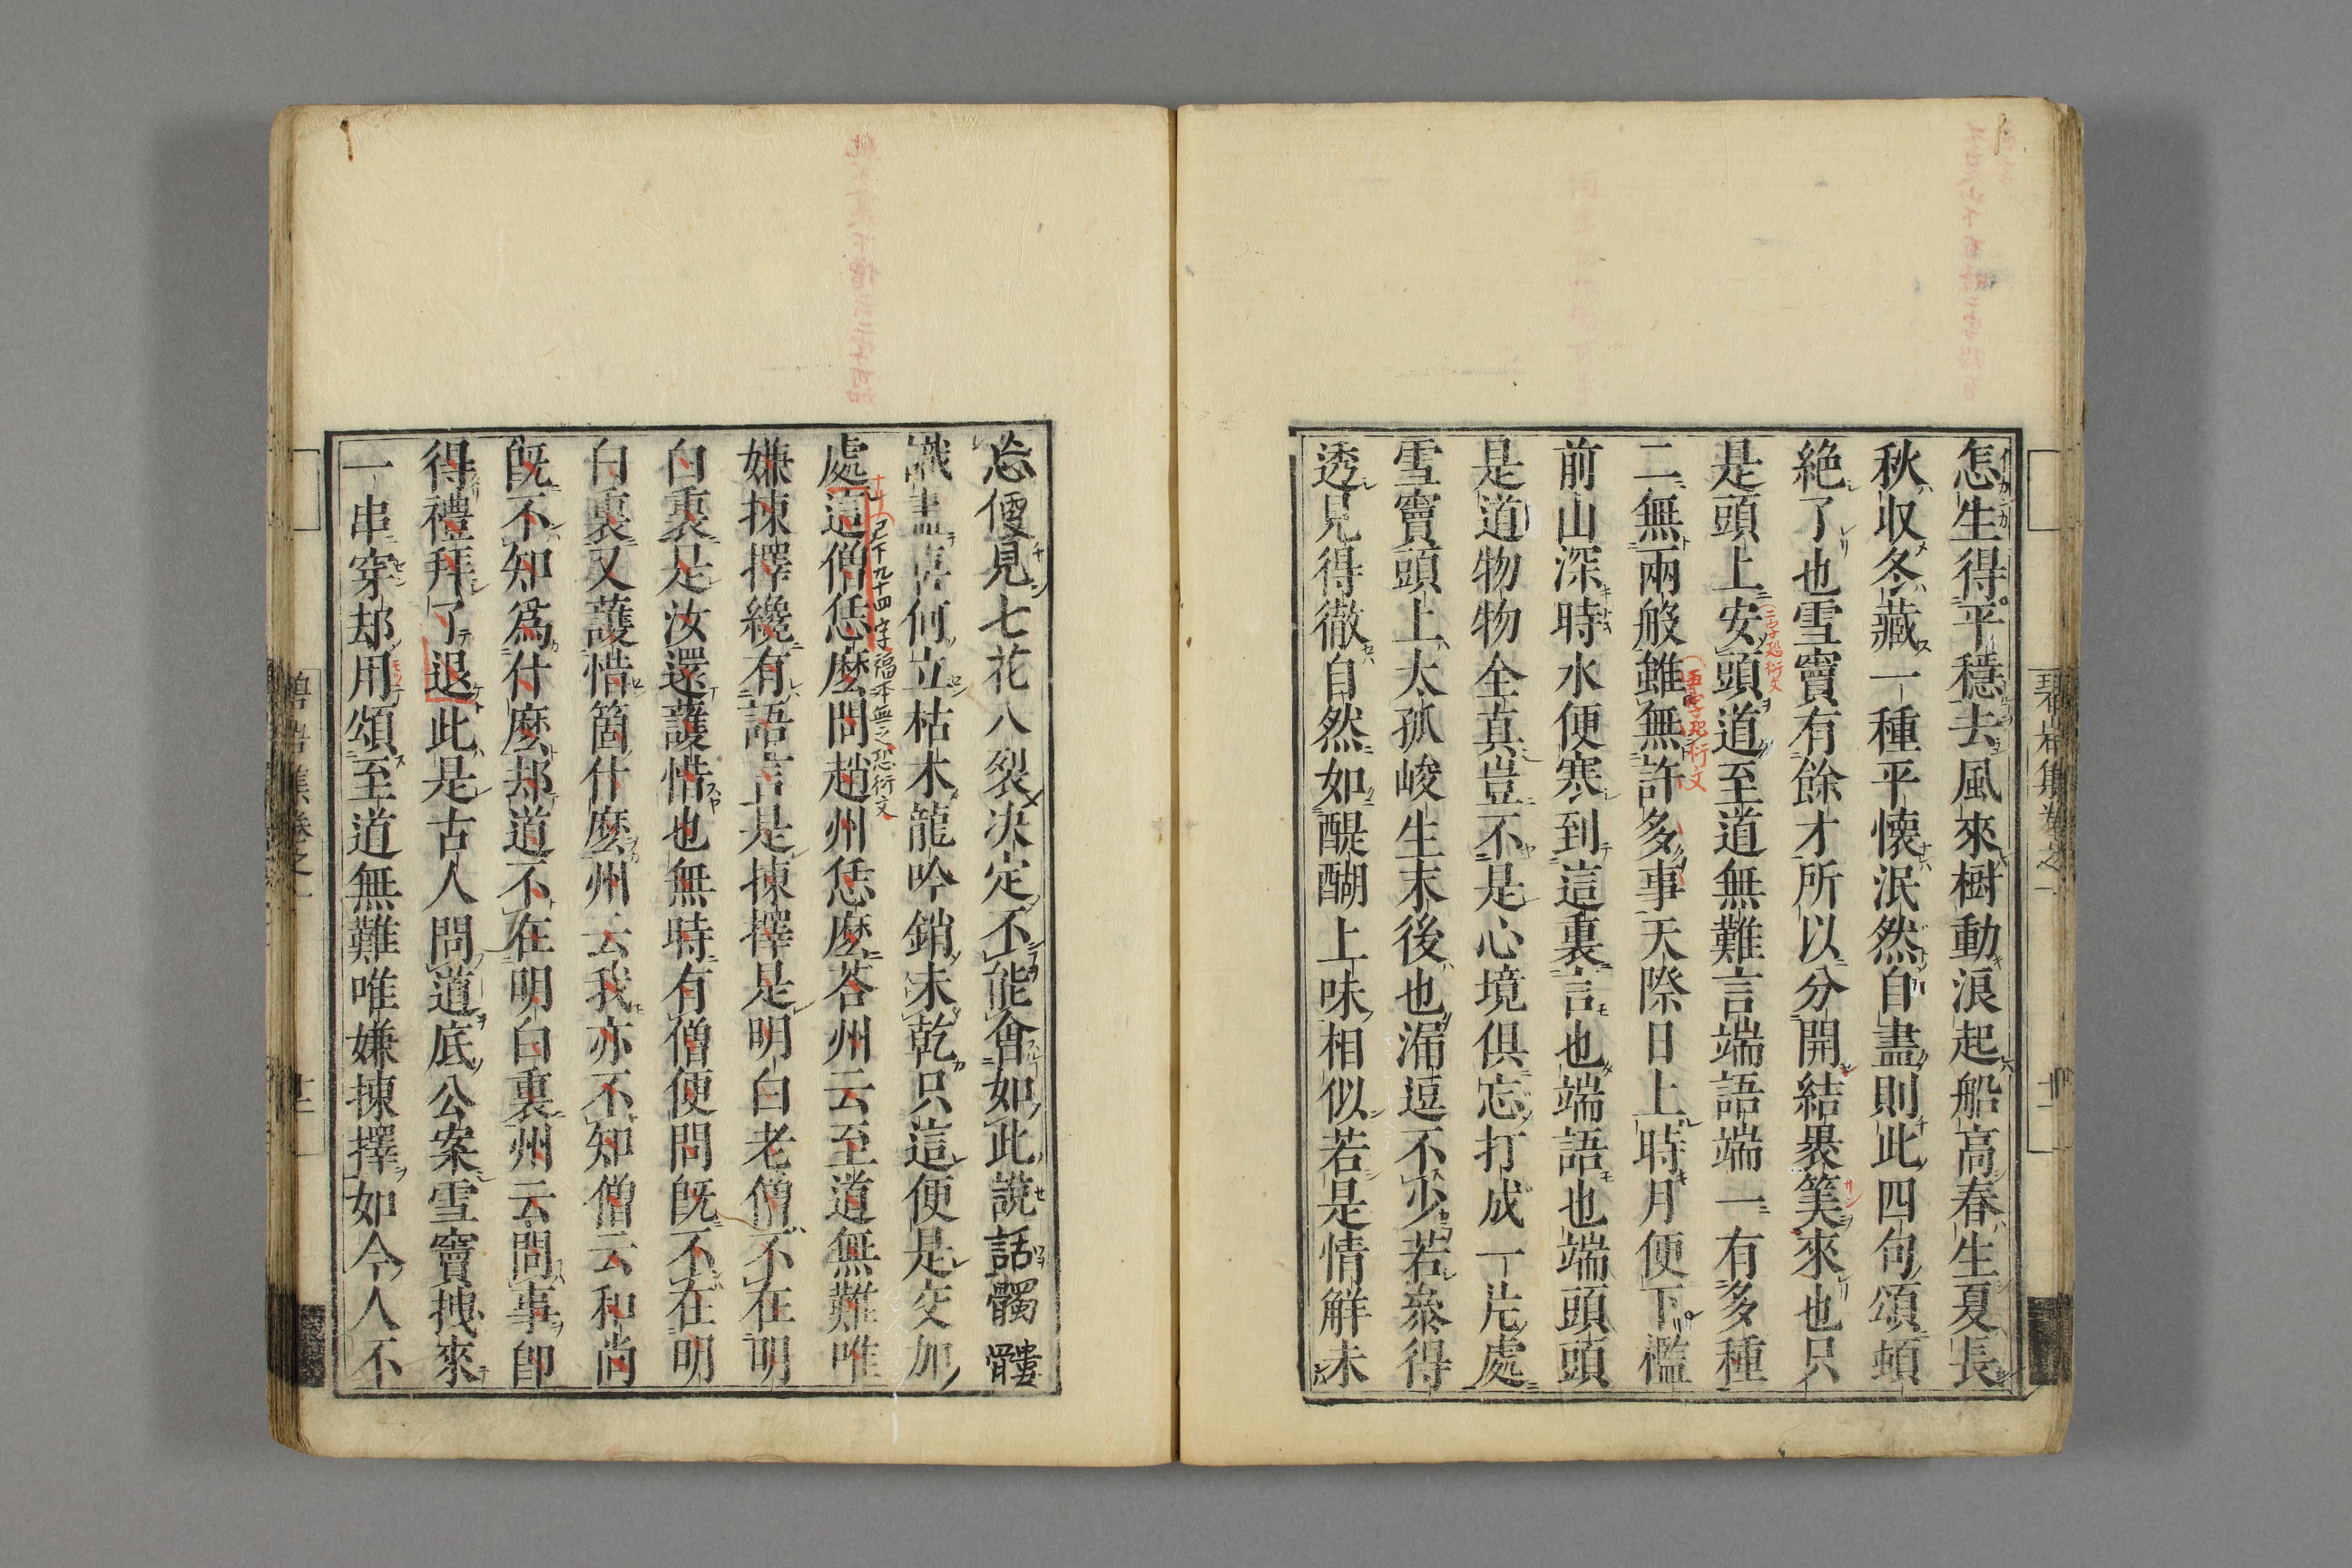 怎生得平穩去風來樹動浪起船高春生夏長
秋收冬藏一種平懷泯然自盡則此四句頌頓
絶了也雪竇有餘才所以分開結褁筭來也只
是頭上安頭道至道無難言端語端一有多種
二字恐衍文
二無兩般雖無許多事天際日上時月便下檻
五字恐衍文
前山深時水便寒到這裏言也端語也端頭頭
是道物物全真豈不是心境俱忘打成一片處
雪竇頭上太孤峻生末後也漏逗不少若叅得
透見得徹自然如醍醐上味相似若是情解未
忘便見七花八裂决定不能會如此說話髑髏
識盡喜何立枯木龍吟銷未乾只這便是交加
處這僧恁麽問趙州恁麽荅州云至道無難唯
已下九十四字福本無之恐衍文
嫌揀擇纔有語言是揀擇是明白老僧不在明
白裏是汝還護惜也無時有僧便問旣不在明
白裏又護惜箇什麽州云我亦不知僧云和尚
旣不知爲什麽却道不在明白裏州云問事卽
得禮拜了退此是古人問道底公案雪竇拽來
一串穿却用頌至道無難唯嫌揀擇如今人不